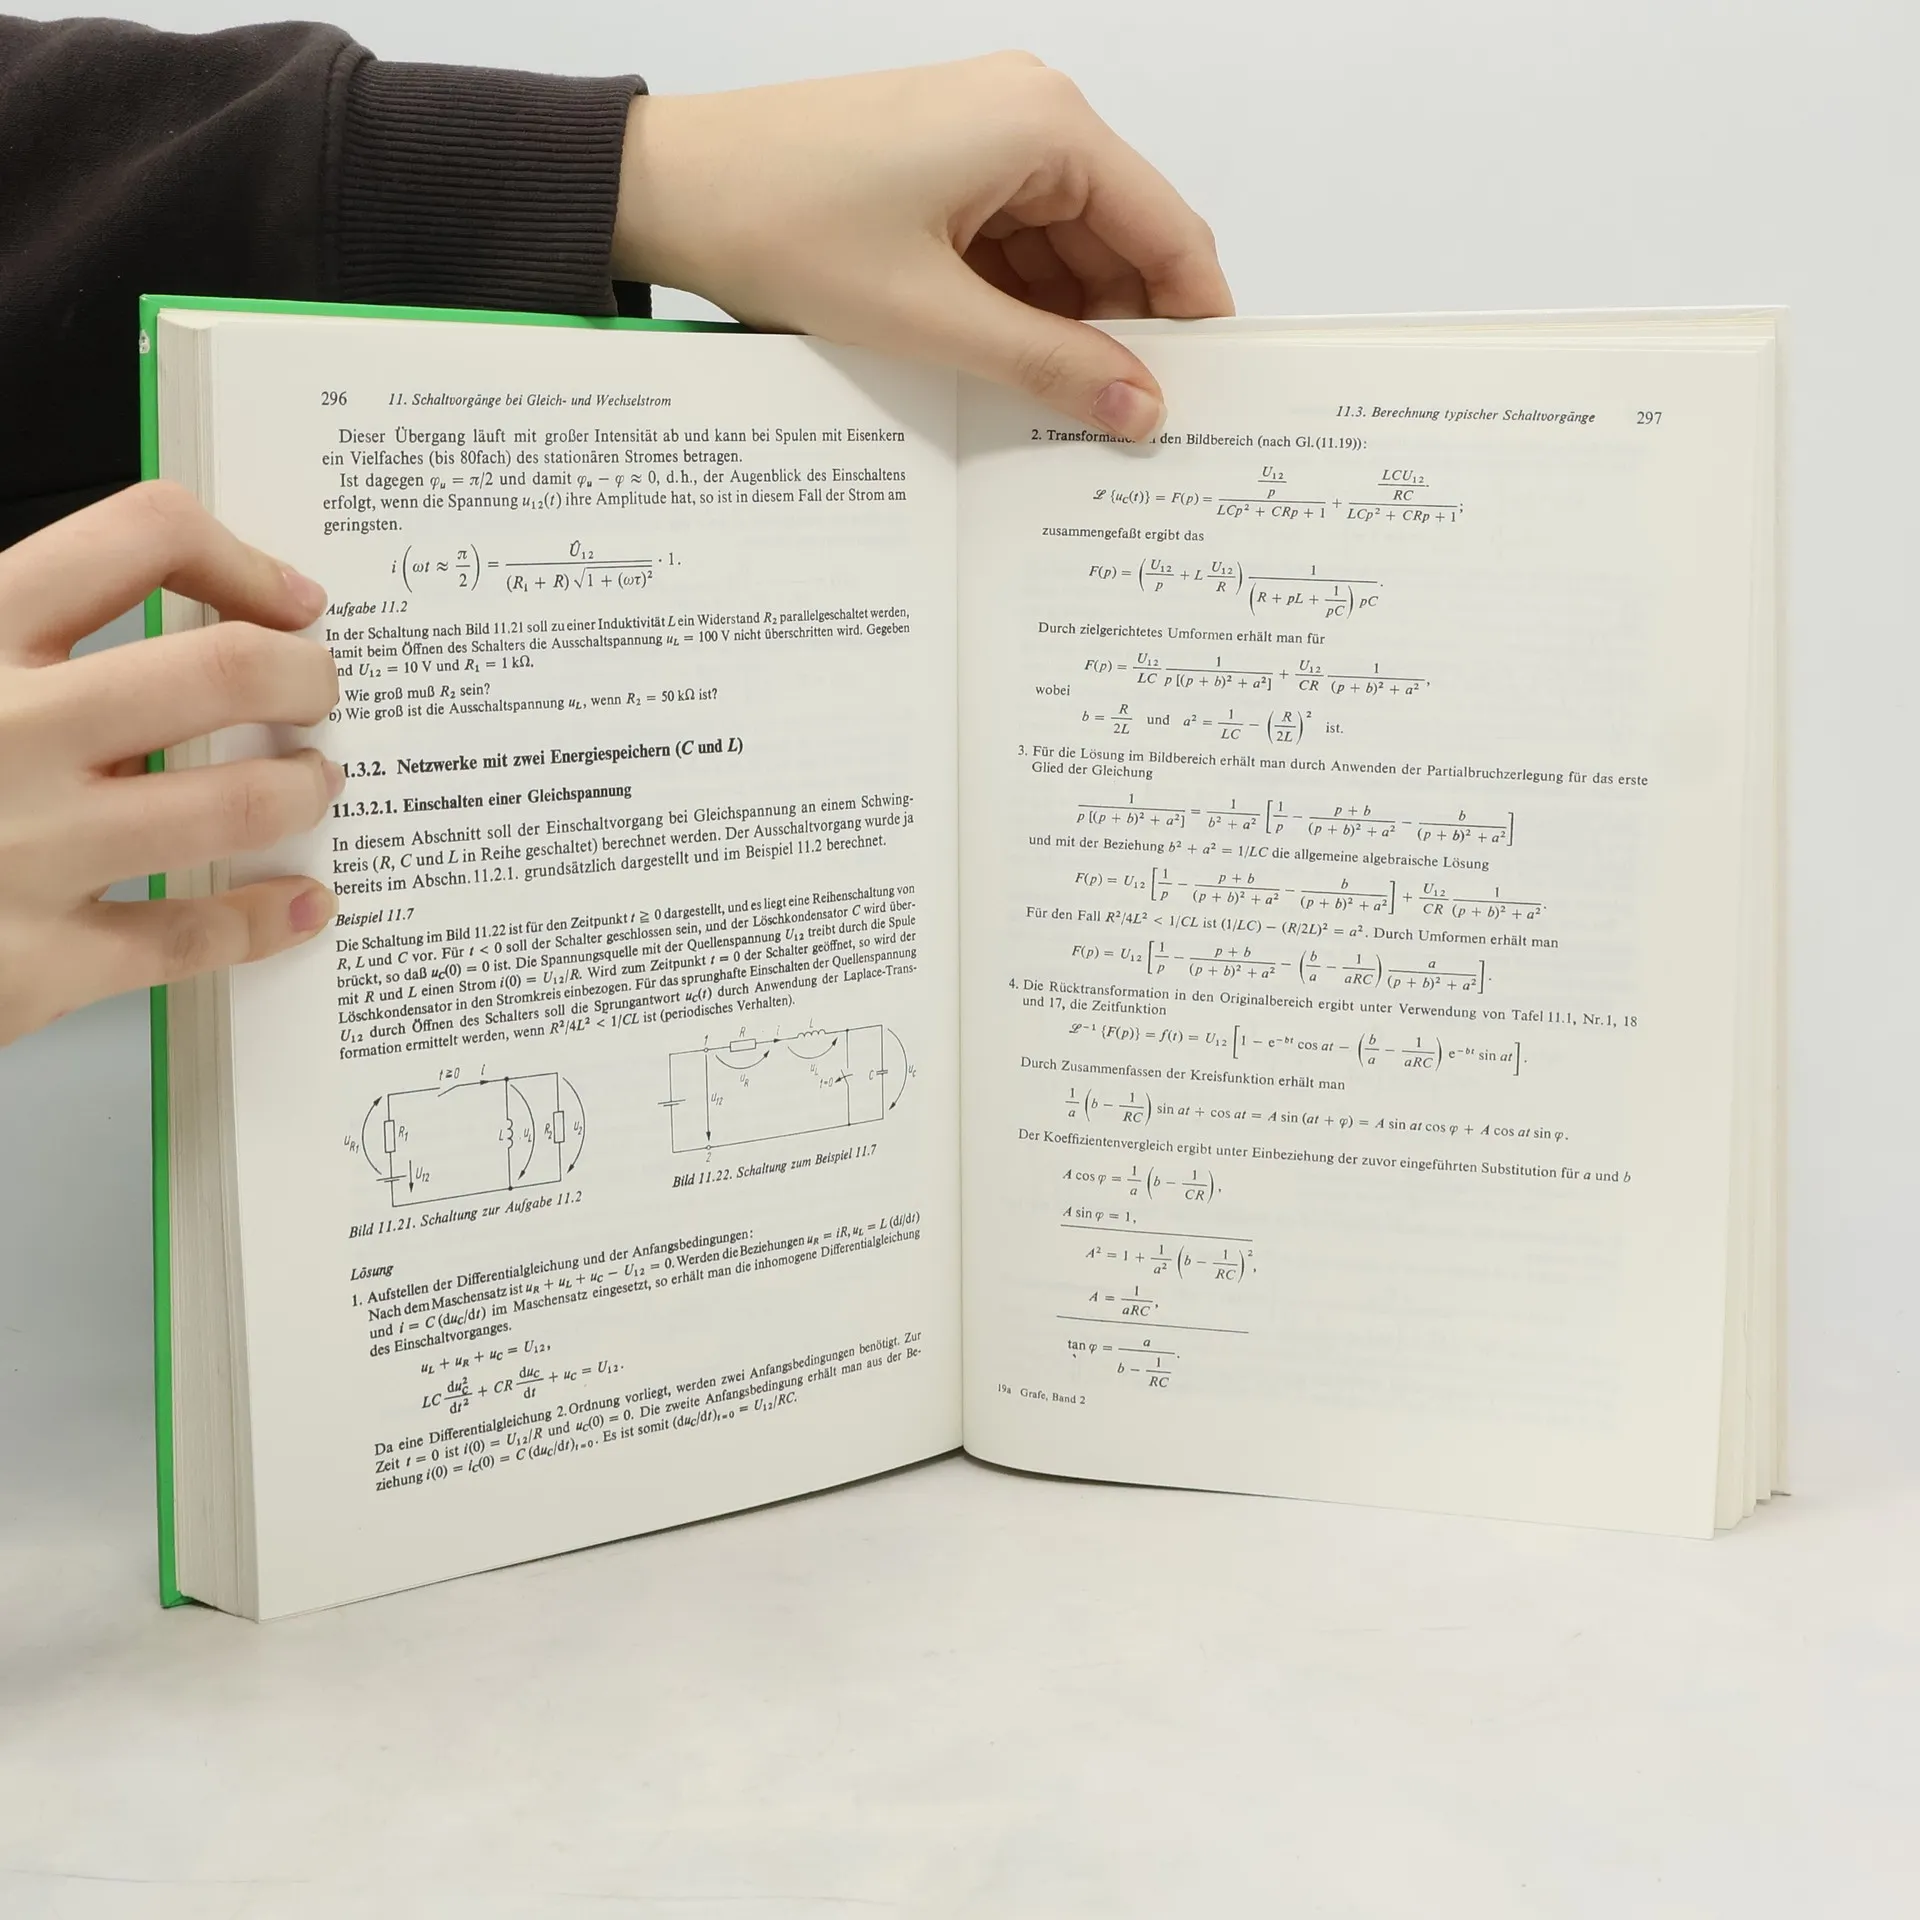 296 11. Schaltvorgänge bei Gleich- und Wechselstrom
Dieser Übergang läuft mit großer Intensität ab und kann bei Spulen mit Eisenkern
ein Vielfaches (bis 80fach) des stationären Stromes betragen.
Ist dagegen φᵤ = π/2 und damit φᵤ − φ ≈ 0, d.h., der Augenblick des Einschaltens
erfolgt, wenn die Spannung u₁₂(t) ihre Amplitude hat, so ist in diesem Fall der Strom am
geringsten.
i (ωt ≈ π/2) = Û₁₂ / ((Rᵢ + R) √(1 + (ωτ)²)) · 1.
Aufgabe 11.2
In der Schaltung nach Bild 11.21 soll zu einer Induktivität L ein Widerstand R₂ parallelgeschaltet werden,
damit beim Öffnen des Schalters die Ausschaltspannung u_L = 100 V nicht überschritten wird. Gegeben
nd U₁₂ = 10 V und R₁ = 1 kΩ.
) Wie groß muß R₂ sein?
b) Wie groß ist die Ausschaltspannung u_L, wenn R₂ = 50 kΩ ist?
1.3.2. Netzwerke mit zwei Energiespeichern (C und L)
11.3.2.1. Einschalten einer Gleichspannung
In diesem Abschnitt soll der Einschaltvorgang bei Gleichspannung an einem Schwing-
kreis (R, C und L in Reihe geschaltet) berechnet werden. Der Ausschaltvorgang wurde ja
bereits im Abschn. 11.2.1. grundsätzlich dargestellt und im Beispiel 11.2 berechnet.
Beispiel 11.7
Die Schaltung im Bild 11.22 ist für den Zeitpunkt t ≧ 0 dargestellt, und es liegt eine Reihenschaltung von
R, L und C vor. Für t < 0 soll der Schalter geschlossen sein, und der Löschkondensator C wird über-
brückt, so daß u_C(0) = 0 ist. Die Spannungsquelle mit der Quellenspannung U₁₂ treibt durch die Spule
mit R und L einen Strom i(0) = U₁₂/R. Wird zum Zeitpunkt t = 0 der Schalter geöffnet, so wird der
Löschkondensator in den Stromkreis einbezogen. Für das sprunghafte Einschalten der Quellenspannung
U₁₂ durch Öffnen des Schalters soll die Sprungantwort u_C(t) durch Anwendung der Laplace-Trans-
formation ermittelt werden, wenn R²/4L² < 1/CL ist (periodisches Verhalten).
t≥0 i
u_R1 R₁ L u_L R₂ u₂
U₁₂
1 R i L
u_R u_L t=0 C u_C
U₁₂
2
Bild 11.21. Schaltung zur Aufgabe 11.2
Bild 11.22. Schaltung zum Beispiel 11.7
Lösung
1. Aufstellen der Differentialgleichung und der Anfangsbedingungen:
Nach dem Maschensatz ist u_R + u_L + u_C − U₁₂ = 0. Werden die Beziehungen u_R = iR, u_L = L (di/dt)
und i = C (du_C/dt) im Maschensatz eingesetzt, so erhält man die inhomogene Differentialgleichung
des Einschaltvorganges.
u_L + u_R + u_C = U₁₂,
LC du_C²/dt² + CR du_C/dt + u_C = U₁₂.
Da eine Differentialgleichung 2. Ordnung vorliegt, werden zwei Anfangsbedingungen benötigt. Zur
Zeit t = 0 ist i(0) = U₁₂/R und u_C(0) = 0. Die zweite Anfangsbedingung erhält man aus der Be-
ziehung i(0) = i_C(0) = C (du_C/dt)ₜ₌₀. Es ist somit (du_C/dt)ₜ₌₀ = U₁₂/RC.
11.3. Berechnung typischer Schaltvorgänge 297
2. den Bildbereich (nach Gl. (11.19)):
ℒ {u_C(t)} = F(p) = (U₁₂/p) / (LCp² + CRp + 1) + (LCU₁₂/RC) / (LCp² + CRp + 1);
zusammengefaßt ergibt das
F(p) = (U₁₂/p + L U₁₂/R) 1 / ((R + pL + 1/pC) pC).
Durch zielgerichtetes Umformen erhält man für
F(p) = U₁₂/LC 1/(p [(p + b)² + a²]) + U₁₂/CR 1/((p + b)² + a²),
wobei
b = R/2L und a² = 1/LC − (R/2L)² ist.
3. Für die Lösung im Bildbereich erhält man durch Anwenden der Partialbruchzerlegung für das erste
Glied der Gleichung
1/(p [(p + b)² + a²]) = 1/(b² + a²) [1/p − (p + b)/((p + b)² + a²) − b/((p + b)² + a²)]
und mit der Beziehung b² + a² = 1/LC die allgemeine algebraische Lösung
F(p) = U₁₂ [1/p − (p + b)/((p + b)² + a²) − b/((p + b)² + a²)] + U₁₂/CR 1/((p + b)² + a²).
Für den Fall R²/4L² < 1/CL ist (1/LC) − (R/2L)² = a². Durch Umformen erhält man
F(p) = U₁₂ [1/p − (p + b)/((p + b)² + a²) − (b/a − 1/aRC) a/((p + b)² + a²)].
4. Die Rücktransformation in den Originalbereich ergibt unter Verwendung von Tafel 11.1, Nr. 1, 18
und 17, die Zeitfunktion
ℒ⁻¹ {F(p)} = f(t) = U₁₂ [1 − e⁻ᵇᵗ cos at − (b/a − 1/aRC) e⁻ᵇᵗ sin at].
Durch Zusammenfassen der Kreisfunktion erhält man
1/a (b − 1/RC) sin at + cos at = A sin (at + φ) = A sin at cos φ + A cos at sin φ.
Der Koeffizientenvergleich ergibt unter Einbeziehung der zuvor eingeführten Substitution für a und b
A cos φ = 1/a (b − 1/CR),
A sin φ = 1,
A² = 1 + 1/a² (b − 1/RC)²,
A = 1/aRC,
tan φ = a/(b − 1/RC).
19a Grafe, Band 2